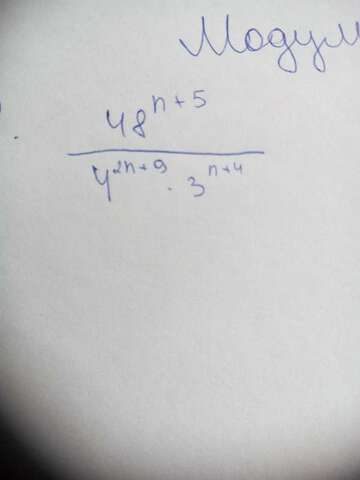 Модул
48^{n+5}
4^{2n+9} · 3^{n+4}